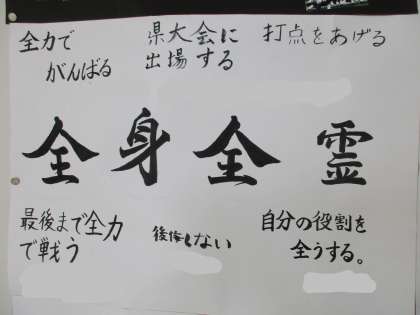 全力で
がんばる
県大会に
出場する
打点をあげる
全身全霊
最後まで全力
で戦う
後悔しない
自分の役割を
全うする。